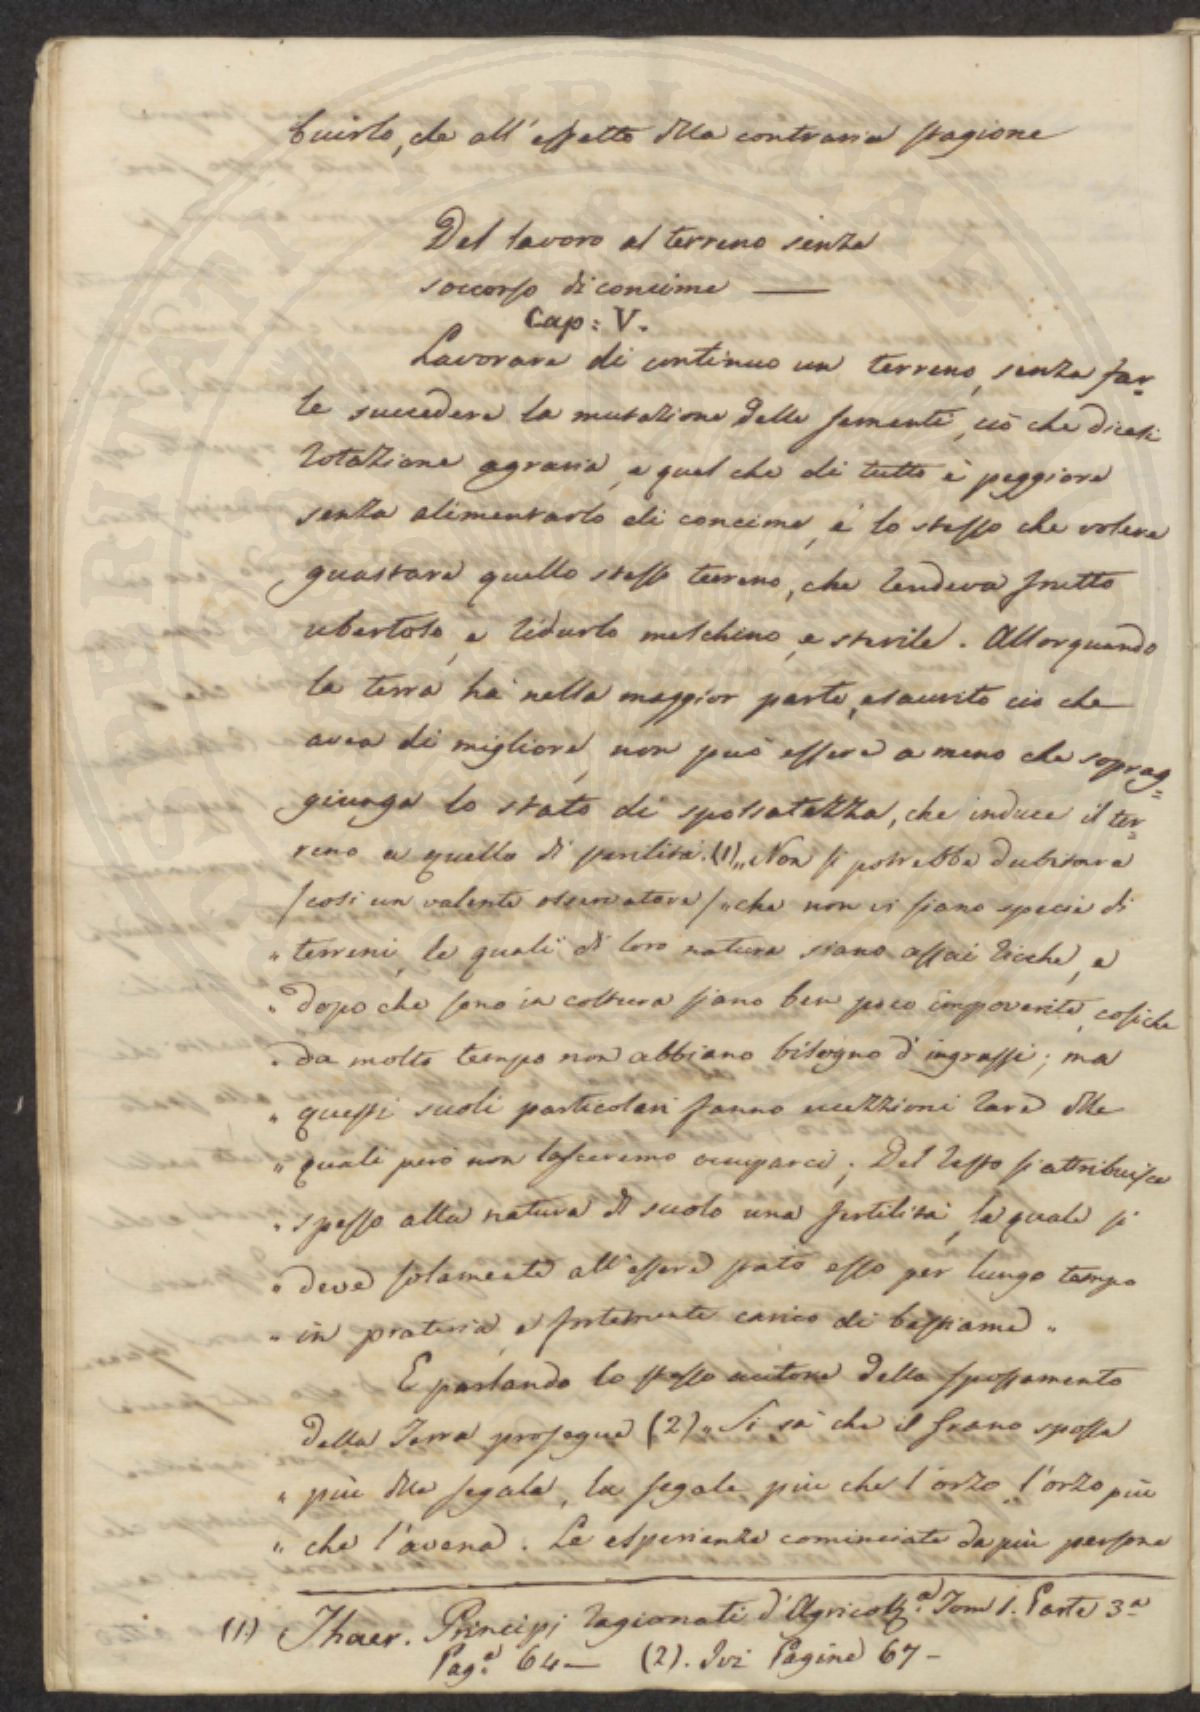 buirlo, che all'effetto della contraria stagione
Del lavoro al terreno senza
soccorso di concime —
Cap: V.
Lavorare di continuo un terreno, senza far=
le succedere la mutazione delle sementi, ciò che dicesi
rotazione agraria, e quel che di tutto è peggiore
senza alimentarlo di concime, è lo stesso che volere
guastare quello stesso terreno, che rendeva frutto
ubertoso, e ridurlo meschino, e sterile. Allorquando
la terra hà nella maggior parte, esaurito ciò che
avea di migliore, non può essere a meno che soprag=
giunga lo stato di spossatezza, che induce il ter=
reno a quello di sterilità. (1) „ Non si potrebbe dubitare
/così un valente osservatore/ „ che non vi siano specie di
„ terreni, le quali di loro natura siano assai ricche, e
„ dopo che sono in coltura siano ben poco impoverite, cosiche
„ da molto tempo non abbiano bisogno d'ingrassi; ma
„ questi suoli particolari fanno eccezzioni rare delle
„ quali però non lasceremo occuparci; Del resto si attribuisce
„ spesso alla natura di suolo una fertilità, la quale si
„ deve solamente all'essere stato esso per lungo tempo
„ in prateria, e fortemente carico di bestiame „
E parlando lo stesso autore dello spossamento
della Terra prosegue (2) „ Si sà che il Grano spossa
„ più della segale, la segale più che l'orzo, l'orzo più
„ che l'avena. Le esperienze cominciate da più persone
(1) Thaer. Principj ragionati d'Agricolt.ª Tom 1. Parte 3.ª
Pag.ª 64 — (2). Ivi Pagine 67 -
PROSPERITATI PUBLICAE